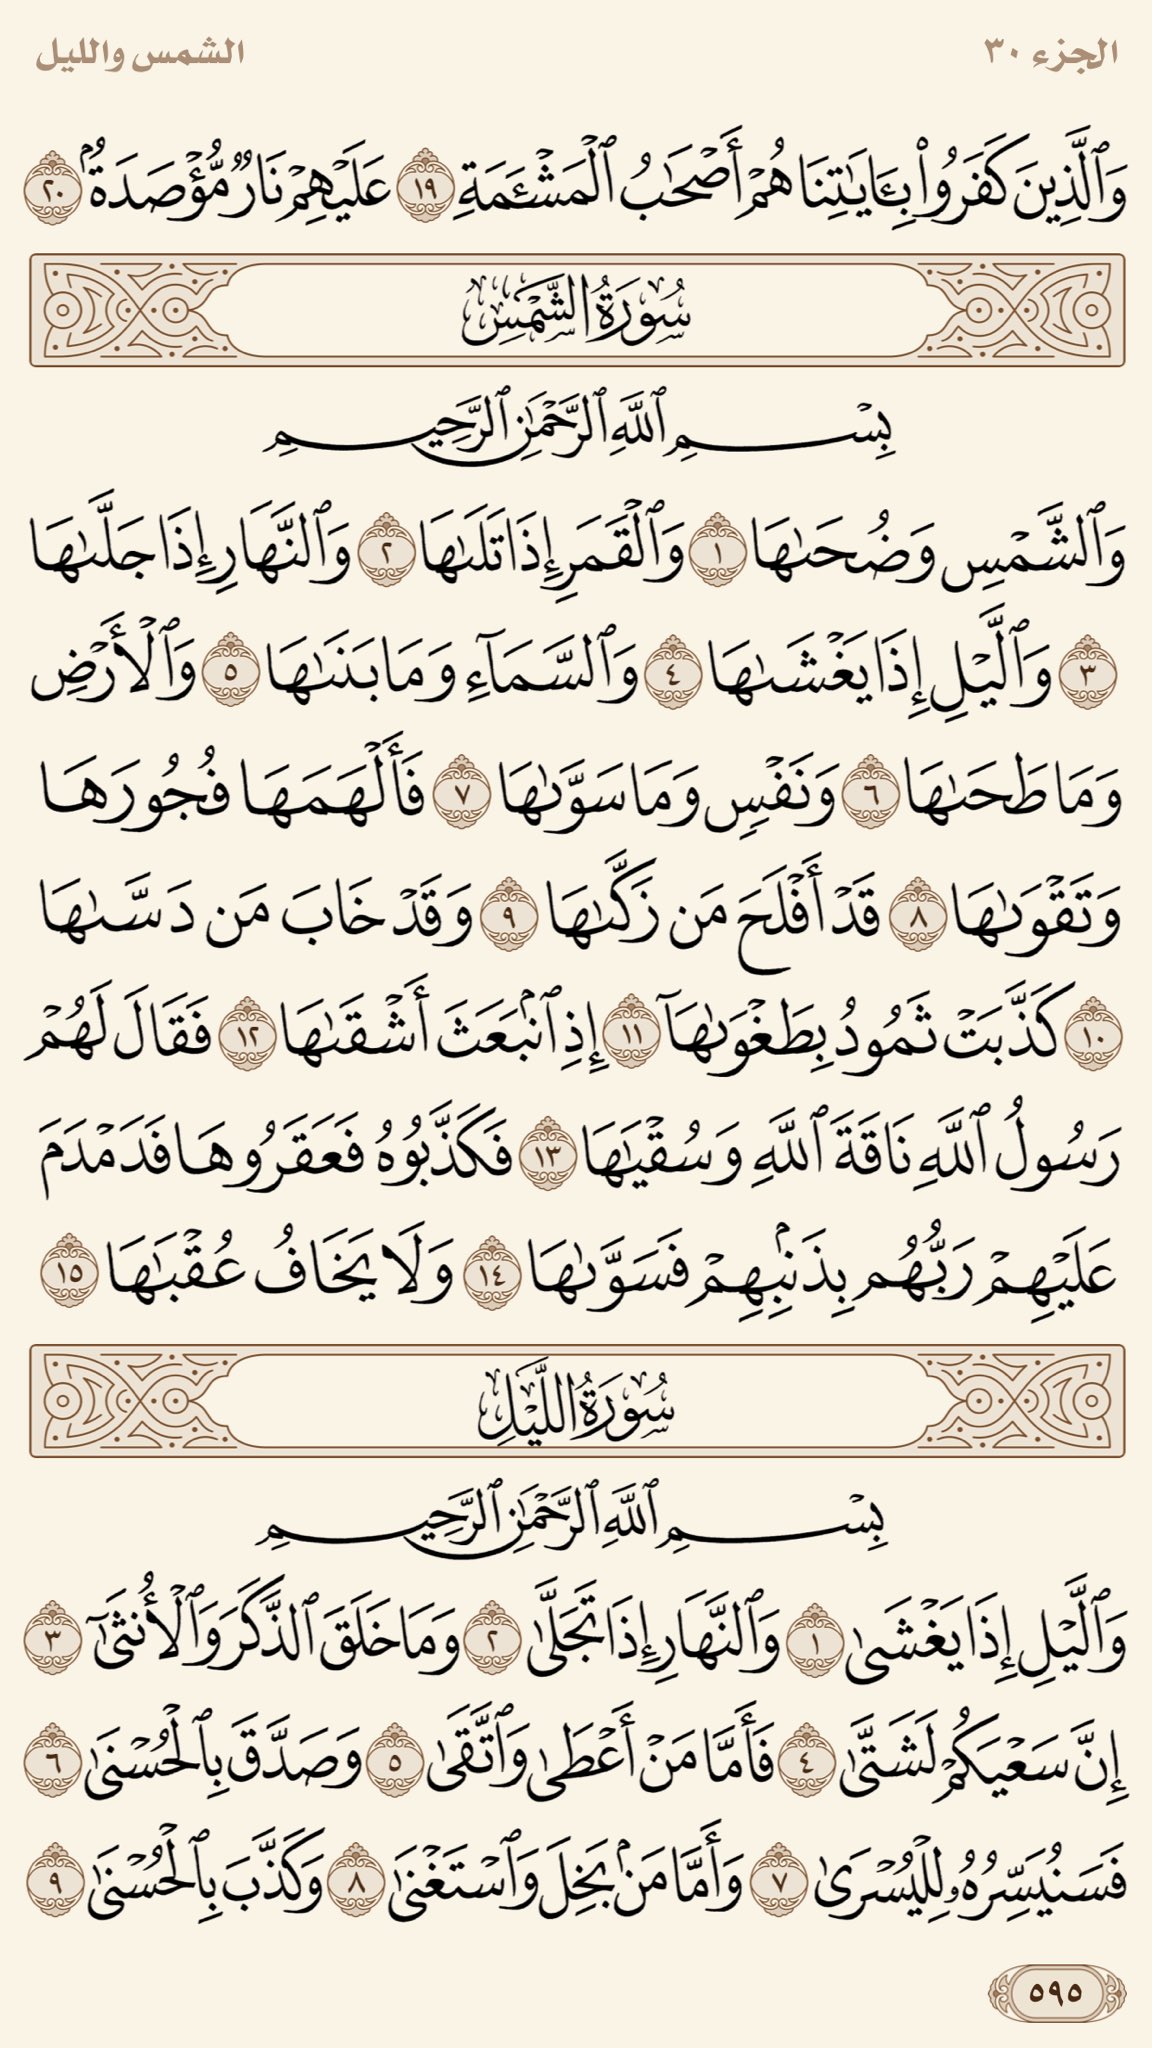 الجزء ٣٠
الشمس والليل
وَٱلَّذِينَ كَفَرُواْ بِـَٔايَٰتِنَا هُمۡ أَصۡحَٰبُ ٱلۡمَشۡـَٔمَةِ ١٩ عَلَيۡهِمۡ نَارٞ مُّؤۡصَدَةُۢ ٢٠
سُورَةُ الشَّمۡسِ
بِسۡمِ ٱللَّهِ ٱلرَّحۡمَٰنِ ٱلرَّحِيمِ
وَٱلشَّمۡسِ وَضُحَىٰهَا ١ وَٱلۡقَمَرِ إِذَا تَلَىٰهَا ٢ وَٱلنَّهَارِ إِذَا جَلَّىٰهَا
٣ وَٱلَّيۡلِ إِذَا يَغۡشَىٰهَا ٤ وَٱلسَّمَآءِ وَمَا بَنَىٰهَا ٥ وَٱلۡأَرۡضِ
وَمَا طَحَىٰهَا ٦ وَنَفۡسٖ وَمَا سَوَّىٰهَا ٧ فَأَلۡهَمَهَا فُجُورَهَا
وَتَقۡوَىٰهَا ٨ قَدۡ أَفۡلَحَ مَن زَكَّىٰهَا ٩ وَقَدۡ خَابَ مَن دَسَّىٰهَا
١٠ كَذَّبَتۡ ثَمُودُ بِطَغۡوَىٰهَآ ١١ إِذِ ٱنۢبَعَثَ أَشۡقَىٰهَا ١٢ فَقَالَ لَهُمۡ
رَسُولُ ٱللَّهِ نَاقَةَ ٱللَّهِ وَسُقۡيَٰهَا ١٣ فَكَذَّبُوهُ فَعَقَرُوهَا فَدَمۡدَمَ
عَلَيۡهِمۡ رَبُّهُم بِذَنۢبِهِمۡ فَسَوَّىٰهَا ١٤ وَلَا يَخَافُ عُقۡبَٰهَا ١٥
سُورَةُ اللَّيۡلِ
بِسۡمِ ٱللَّهِ ٱلرَّحۡمَٰنِ ٱلرَّحِيمِ
وَٱلَّيۡلِ إِذَا يَغۡشَىٰ ١ وَٱلنَّهَارِ إِذَا تَجَلَّىٰ ٢ وَمَا خَلَقَ ٱلذَّكَرَ وَٱلۡأُنثَىٰٓ ٣
إِنَّ سَعۡيَكُمۡ لَشَتَّىٰ ٤ فَأَمَّا مَنۡ أَعۡطَىٰ وَٱتَّقَىٰ ٥ وَصَدَّقَ بِٱلۡحُسۡنَىٰ ٦
فَسَنُيَسِّرُهُۥ لِلۡيُسۡرَىٰ ٧ وَأَمَّا مَنۢ بَخِلَ وَٱسۡتَغۡنَىٰ ٨ وَكَذَّبَ بِٱلۡحُسۡنَىٰ ٩
٥٩٥